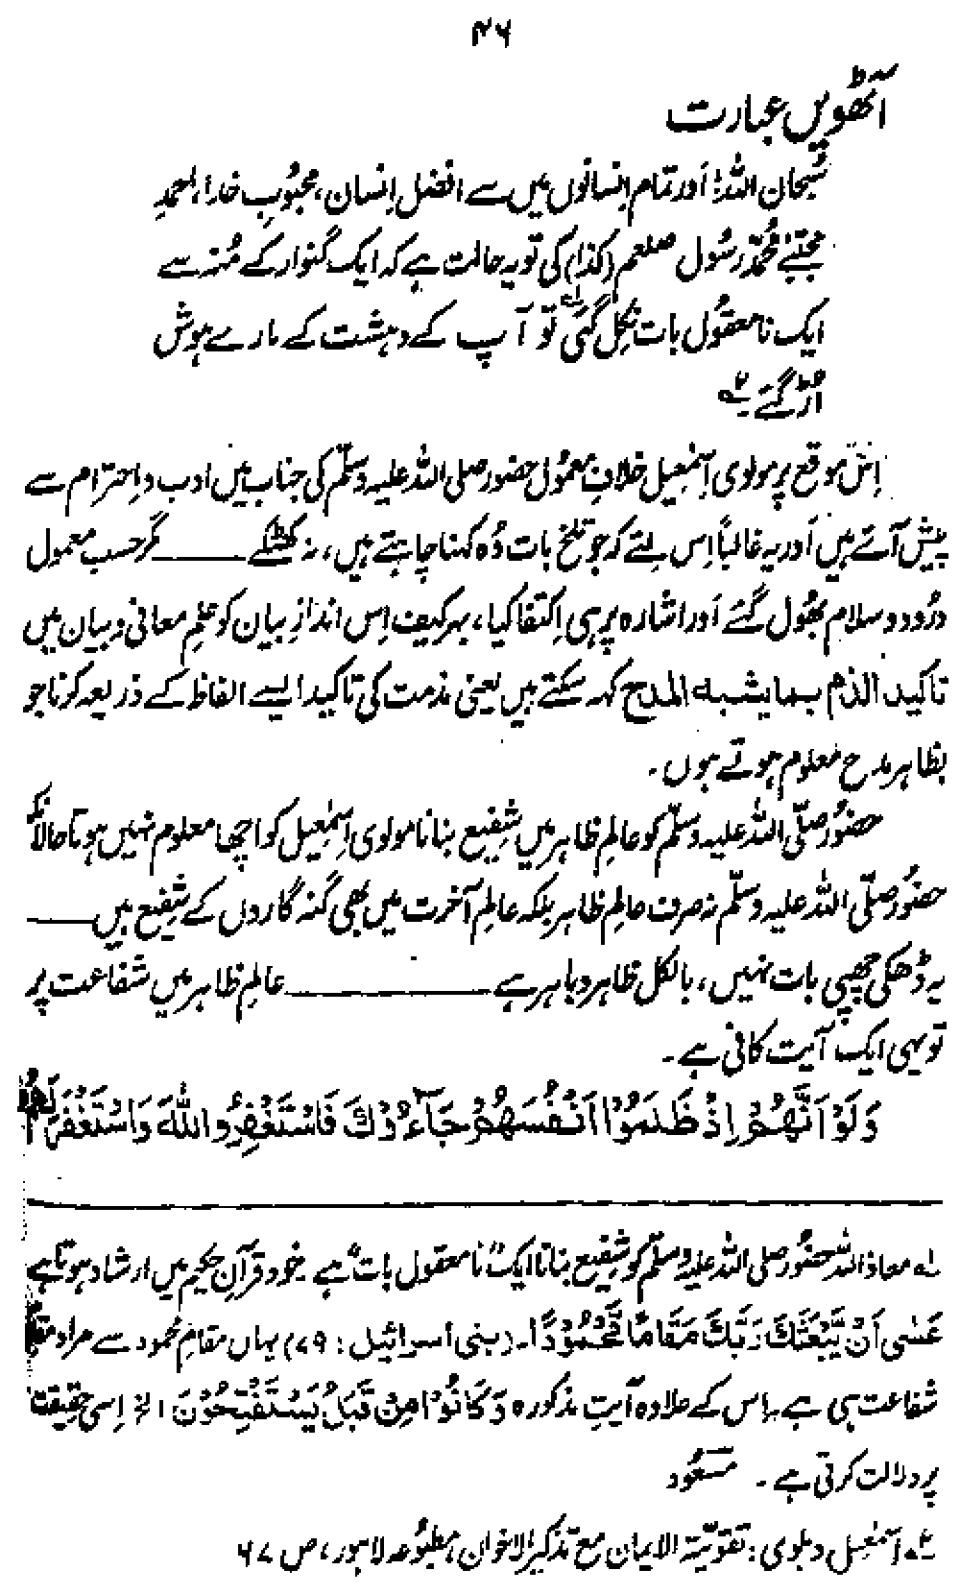 ۴۶
آٹھویں عبارت
سُبحان اللہ! اَور تمام انسانوں میں سے افضل اِنسان، محبُوبِ خدا، احمدِ
مجتبےٰ مُحمّد رسُول صلعم (کذا) کی تو یہ حالت ہے کہ ایک گنوار کے مُنہ سے
ایک نامعقُول بات نِکل گئی لہ تو آپ کے دہشت کے مارے ہوش
اُڑ گئے ۲؎
اِس موقع پر مولوی اِسمٰعیل خلافِ معمُول حضور صلی اللہ علیہ وسلّم کی جناب میں ادب و اِحترام سے
پیش آئے ہیں اَور یہ غالباً اِس لئے کہ جو تلخ بات وُہ کہنا چاہتے ہیں، نہ کھٹکے ـــــ مگر حسب معمول
درُود و سلام بھُول گئے اَور اشارہ پر ہی اِکتفا کیا، بہرکیف اِس اندازِ بیان کو علمِ معانی و بیان میں
تاکید الذم بما یشبہ المدح کہہ سکتے ہیں یعنی مذمت کی تاکید ایسے الفاظ کے ذریعہ کرنا جو
بظاہر مدح معلوم ہوتے ہوں۔
حضُور صلّی اللہ علیہ وسلّم کو عالمِ ظاہر میں شفِیع بنانا مولوی اِسمٰعیل کو اچھا معلوم نہیں ہوتا حالانکہ
حضُور صلّی اللہ علیہ وسلّم نہ صرف عالمِ ظاہر بلکہ عالمِ آخرت میں بھی گنہ گاروں کے شفِیع ہیں ـــــ
یہ ڈھکی چھپی بات نہیں، بالکل ظاہر و باہر ہے ـــــــــــ عالمِ ظاہر میں شفاعت پر
تو یہی ایک آیت کافی ہے۔
وَلَوْ اَنَّهُمْ اِذْ ظَلَمُوْا اَنْفُسَهُمْ جَآءُوْكَ فَاسْتَغْفَرُوا اللّٰهَ وَاسْتَغْفَرَ لَهُمُ
۱؎ معاذ اللہ حضُور صلی اللہ علیہ وسلّم کو شفِیع بنانا ایک "نامعقول بات" ہے خود قرآنِ حکیم میں ارشاد ہوتا ہے
عَسٰى اَنْ يَّبْعَثَكَ رَبُّكَ مَقَامًا مَّحْمُوْدًا۔ (بنی اسرائیل: ۷۹) یہاں مقامِ محمود سے مراد مقامِ
شفاعت ہی ہے۔ اِس کے علاوہ آیتِ مذکورہ وَكَانُوْا مِنْ قَبْلُ يَسْتَفْتِحُوْنَ الخ اِسی حقیقت
پر دلالت کرتی ہے۔ مسعُود
۲؎ اسمٰعیل دہلوی: تقویۃ الایمان مع تذکیر الاخوان، مطبُوعہ لاہور، ص ۶۷